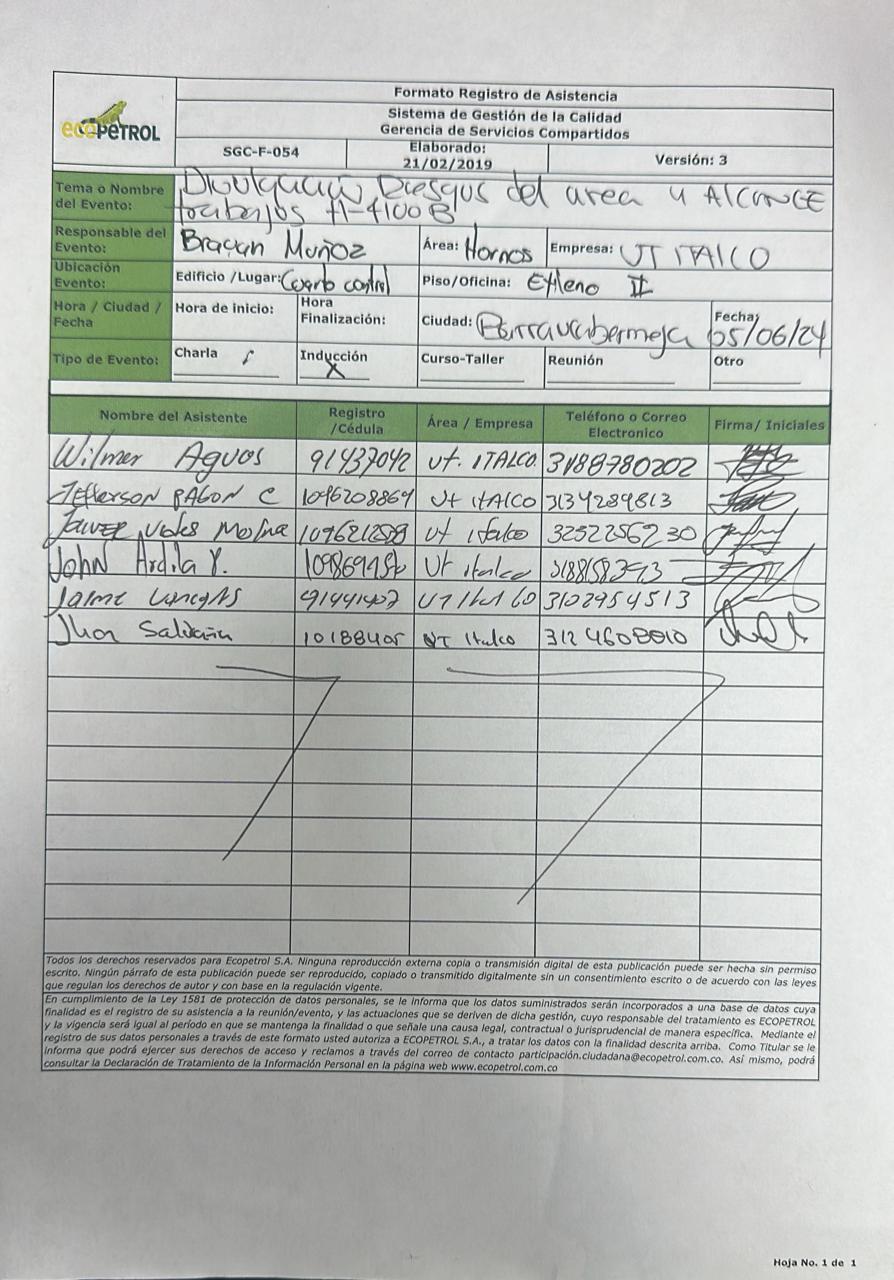 Formato Registro de Asistencia
Sistema de Gestión de la Calidad
Gerencia de Servicios Compartidos
ecoPETROL
SGC-F-054
Elaborado:
21/02/2019
Versión: 3
Tema o Nombre del Evento: Divulgación Riesgos del area y ALCANCE
trabajos H-4100B
Responsable del Evento: Brayan Muñoz Área: Hornos Empresa: UT ITALCO
Ubicación Evento: Edificio /Lugar: Cuarto control Piso/Oficina: Etileno II
Hora / Ciudad / Fecha Hora de inicio: Hora Finalización: Ciudad: Barrancabermeja Fecha: 05/06/24
Tipo de Evento: Charla Inducción X Curso-Taller Reunión Otro
Nombre del Asistente Registro /Cédula Área / Empresa Teléfono o Correo Electronico Firma/ Iniciales
Wilmer 91437042 Ut. ITALCO. 3188780202
Jefferson C 1096208864 Ut ITALCO 3134289813
Molina Ut italco 3252256230
John Ardila Ut italco
Jaime 3102954513
Jhon UT Italco
Todos los derechos reservados para Ecopetrol S.A. Ninguna reproducción externa copia o transmisión digital de esta publicación puede ser hecha sin permiso
escrito. Ningún párrafo de esta publicación puede ser reproducido, copiado o transmitido digitalmente sin un consentimiento escrito o de acuerdo con las leyes
que regulan los derechos de autor y con base en la regulación vigente.
En cumplimiento de la Ley 1581 de protección de datos personales, se le informa que los datos suministrados serán incorporados a una base de datos cuya
finalidad es el registro de su asistencia a la reunión/evento, y las actuaciones que se deriven de dicha gestión, cuyo responsable del tratamiento es ECOPETROL
y la vigencia será igual al período en que se mantenga la finalidad o que señale una causa legal, contractual o jurisprudencial de manera específica. Mediante el
registro de sus datos personales a través de este formato usted autoriza a ECOPETROL S.A., a tratar los datos con la finalidad descrita arriba. Como Titular se le
informa que podrá ejercer sus derechos de acceso y reclamos a través del correo de contacto participación.ciudadana@ecopetrol.com.co. Así mismo, podrá
consultar la Declaración de Tratamiento de la Información Personal en la página web www.ecopetrol.com.co
Hoja No. 1 de 1